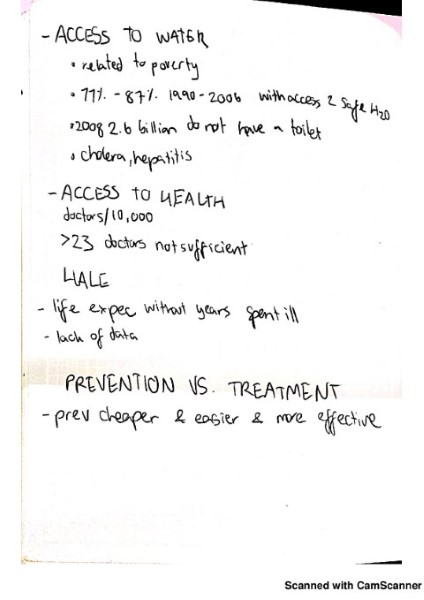 - ACCESS TO WATER
• related to poverty
• 77% - 87% 1990-2006 with access 2 safe H2O
• 2008 2.6 billion do not have a toilet
• cholera, hepatitis
- ACCESS TO HEALTH
doctors/10,000
>23 doctors not sufficient
HALE
- life expec without years spent ill
- lack of data
PREVENTION VS. TREATMENT
- prev cheaper & easier & more effective
Scanned with CamScanner